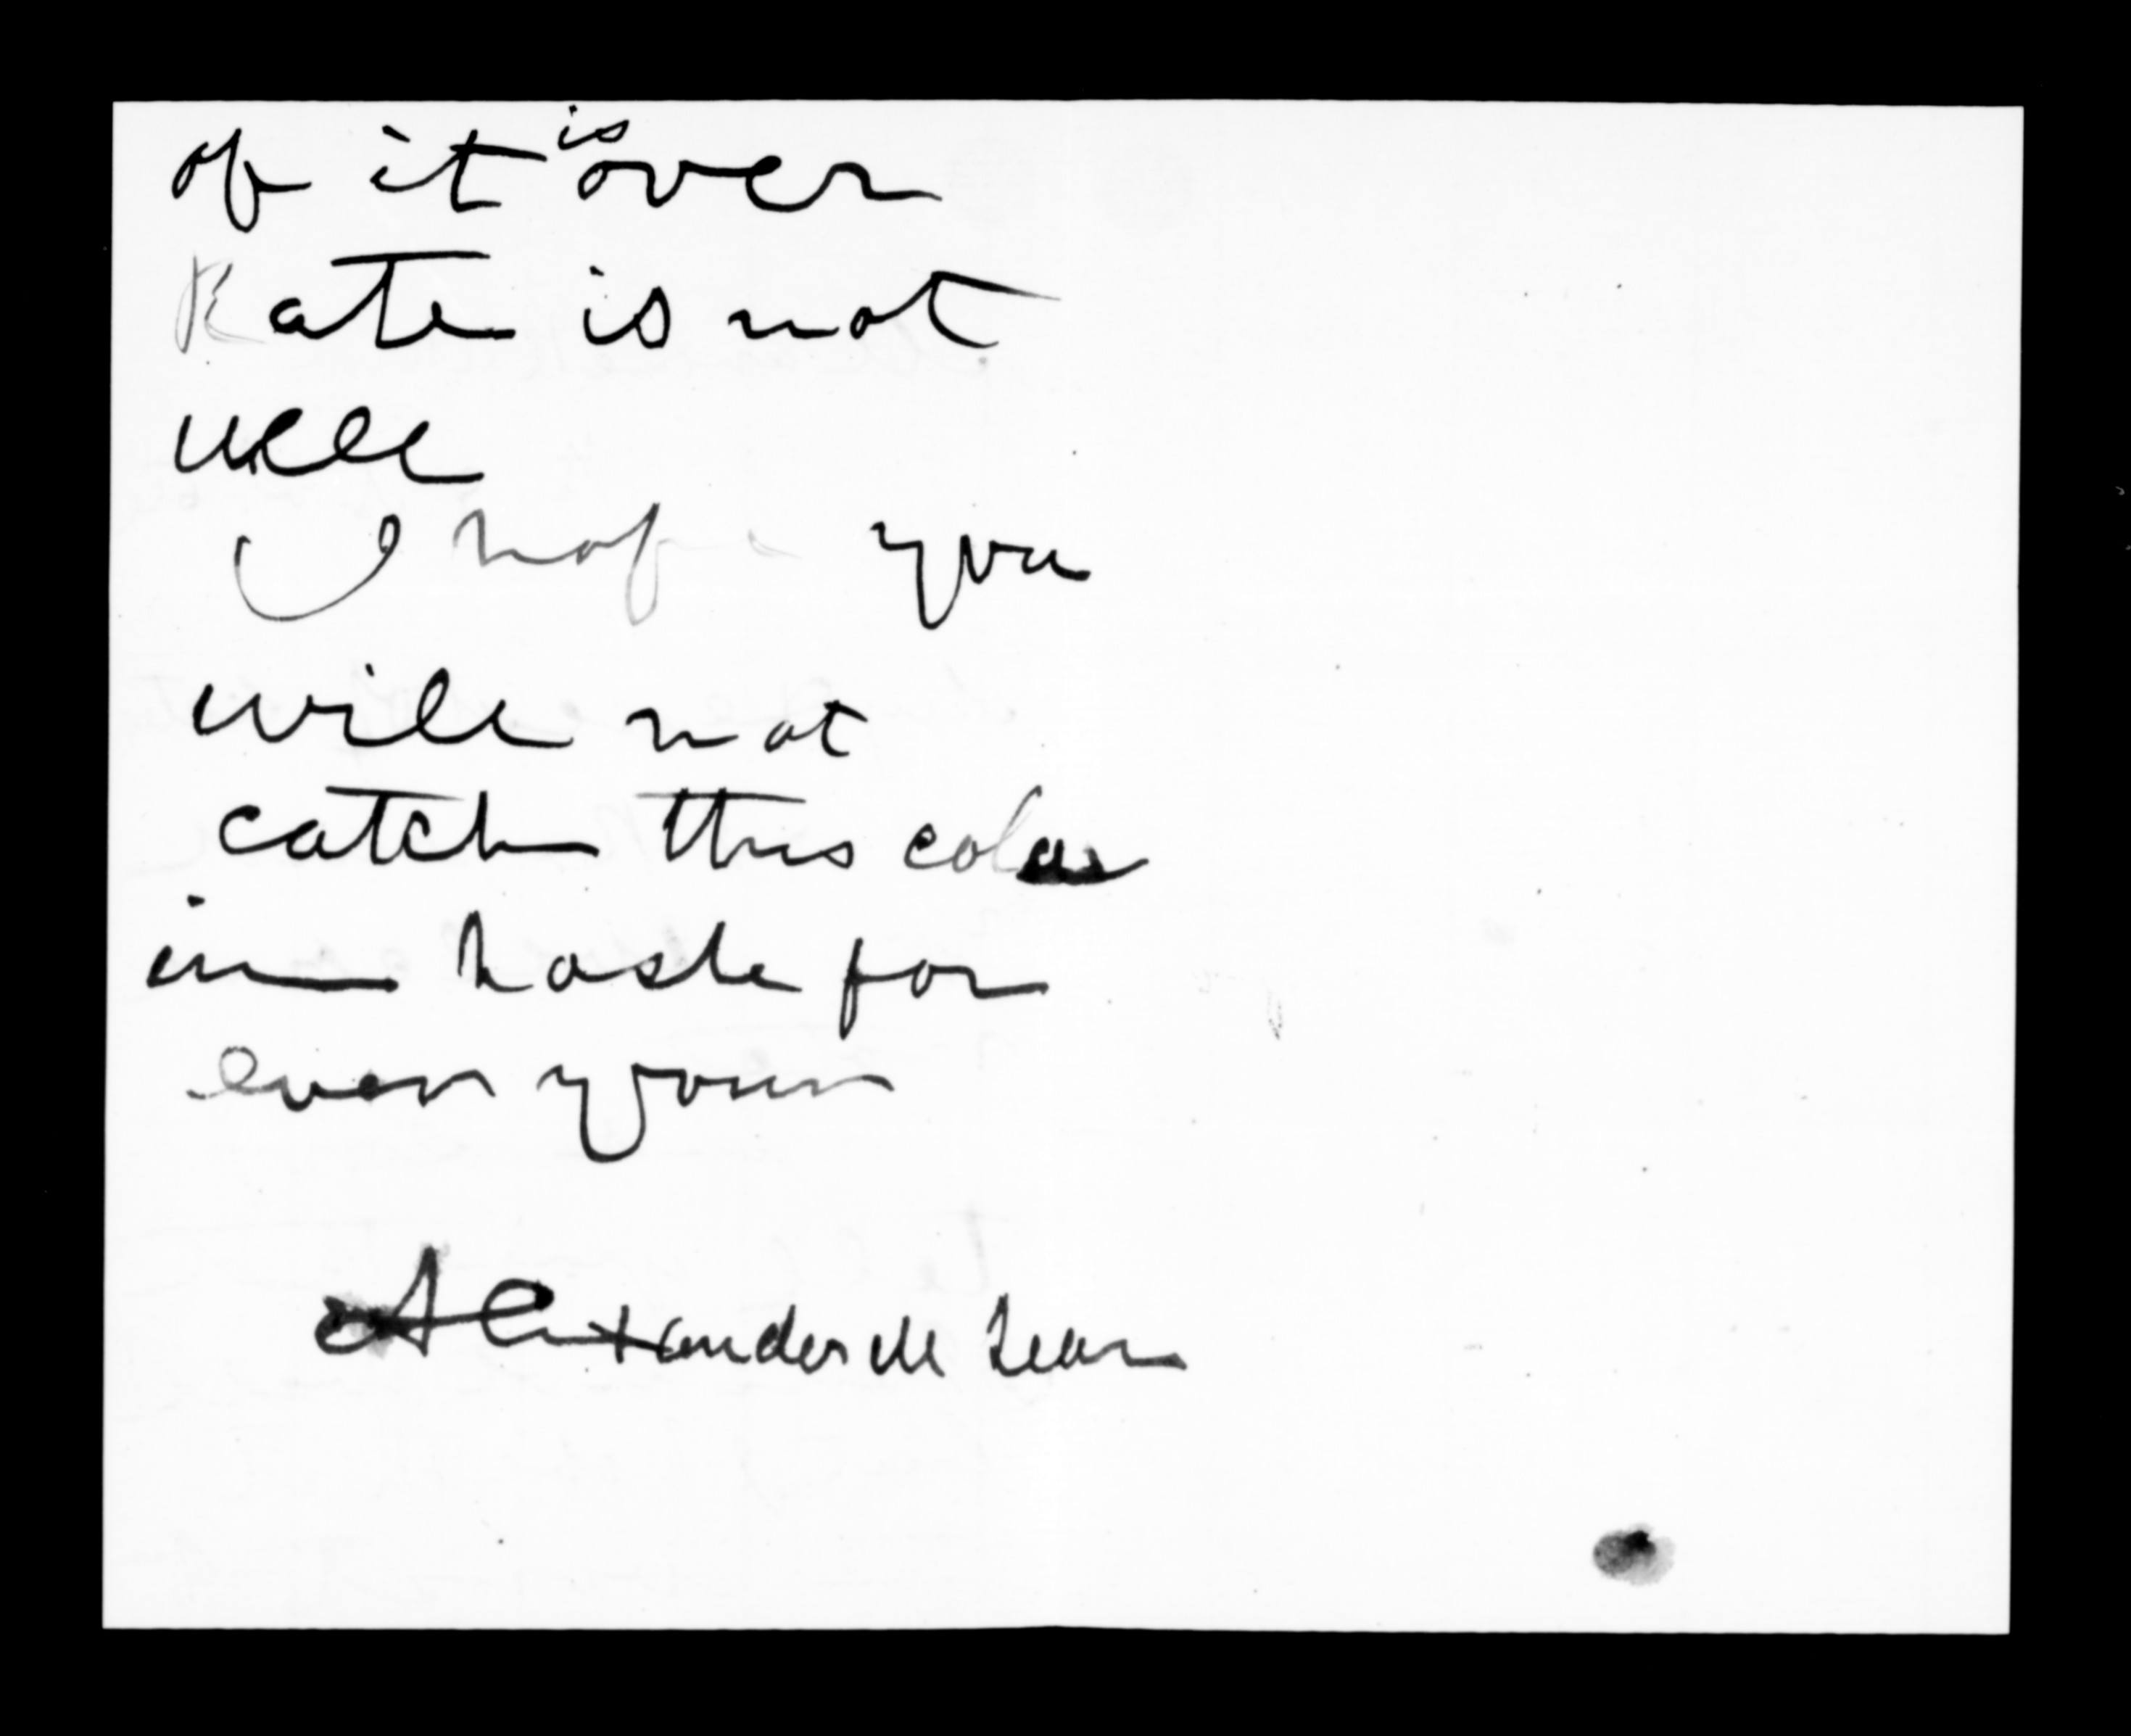 of it is over
Kate is not
well
I hope you
will not
catch this
in haste for
ever yours
Alexander M Lean